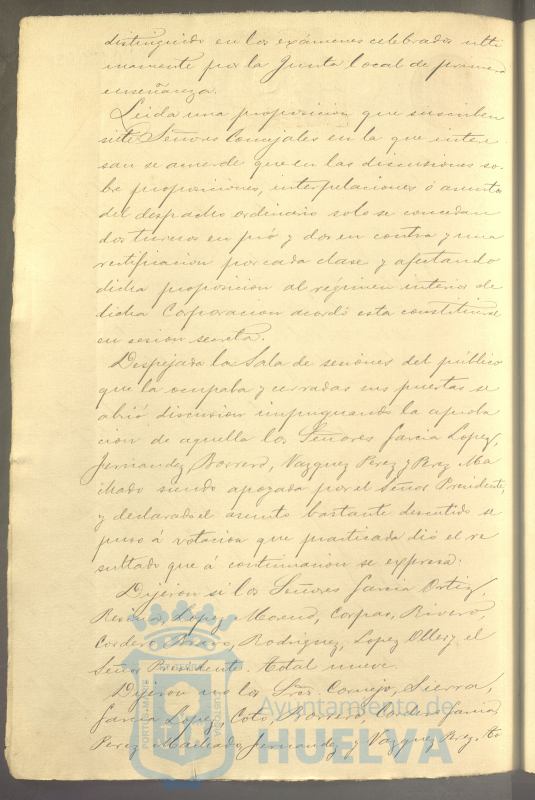 distinguido en los exámenes celebrados ulti
mamente por la Junta local de primera
enseñanza.
Leida una proposicion que suscriben
siete Señores Concejales en la que intere
san se acuerde que en las discusiones so
bre proposiciones, interpelaciones ó asuntos
del despacho ordinario solo se concedan
dos turnos en pró y dos en contra y una
rectificacion por cada clase y afectando
dicha proposicion al régimen interior de
dicha Corporacion acordó esta constituirse
en sesion secreta.
Despejada la Sala de sesiones del público
que la ocupaba y cerradas sus puertas se
abrió discusion impugnando la aproba
cion de aquella los Señores Garcia Lopez,
Fernandez, Borrero, Vazquez Perez y Perez Ma
chado siendo apoyada por el Señor Presidente,
y declarado el asunto bastante discutido se
puso á votacion que practicada dió el re
sultado que á continuacion se expresa:
Dijeron si los Señores Garcia Ortiz,
Lopez Moreno, Corpas, Rivero,
Cordero Bravo, Rodriguez, Lopez Oller y el
Señor Presidente. total nueve.
Dijeron no los Sres. Cornejo, Sierra,
Garcia Lopez, Coto, Borrero, Cordero Garcia
Perez Machado, Fernandez y Vazquez Perez. to
Ayuntamiento de
HUELVA
PORTUS MARIS